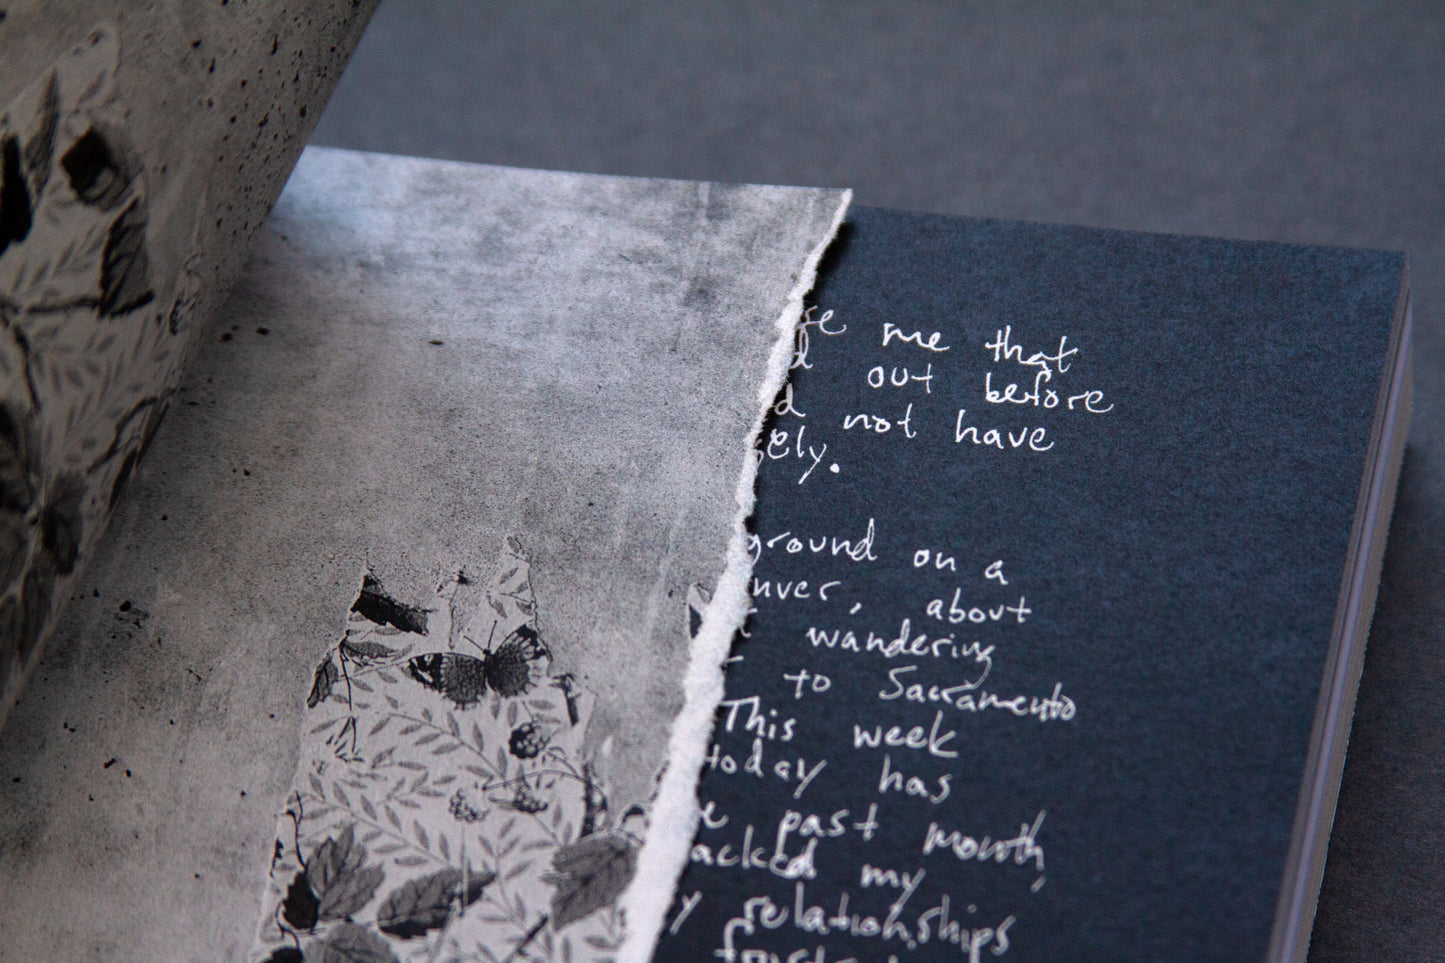 me that
out before
not have
ely.
ground on a
nver, about
wandering
to Sacramento
This week
today has
past month,
acked my
y relationships